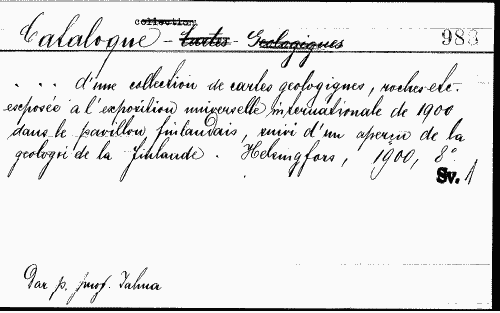 collection
Catalogue - Cartes - Geologignes 983
. . . d'une collection de cartes geologignes, roches etc.
exposée a l'exposition universelle internationale de 1900
dans le pavillon finlandais, suivi d'un apercu de la
geologri de la Finlande. Helsingfors, 1900, 8°.
Sv. 1
Dar p. prof. Jahna